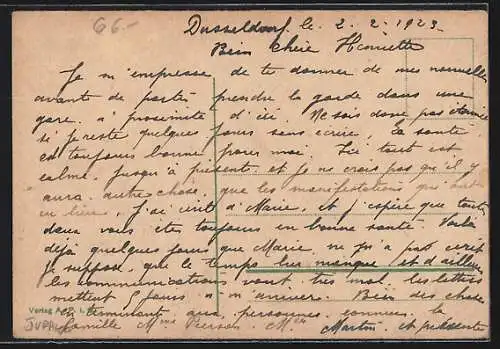 66-
Dusseldorf le. 2. 2. 1923.
Bien chère Henriette
Je m'empresse de te donner de mes nouvelles
avant de partir prendre la garde dans une
gare a proximité d'ici. Ne sois donc pas étonnée
si je reste quelques jours sans écrire, la santé
est toujours bonne pour moi. Ici tout est
calme jusqu'à présent et je ne crois pas qu'il y
aura autre chose que les manifestations que
J'ai écrit à Marie, et j'espère que toutes
deux vous êtes toujours en bonne santé. Voilà
déjà quelques jours que Marie ne m'a pas écrit
je suppose que le temps lui manque et d'ailleurs
les communications vont très mal. les lettres
mettent 8 jours a m'arriver. Bien des choses
Verlag
en terminant aux personnes connues le
famille Mme Pierson Mr Martin et présente